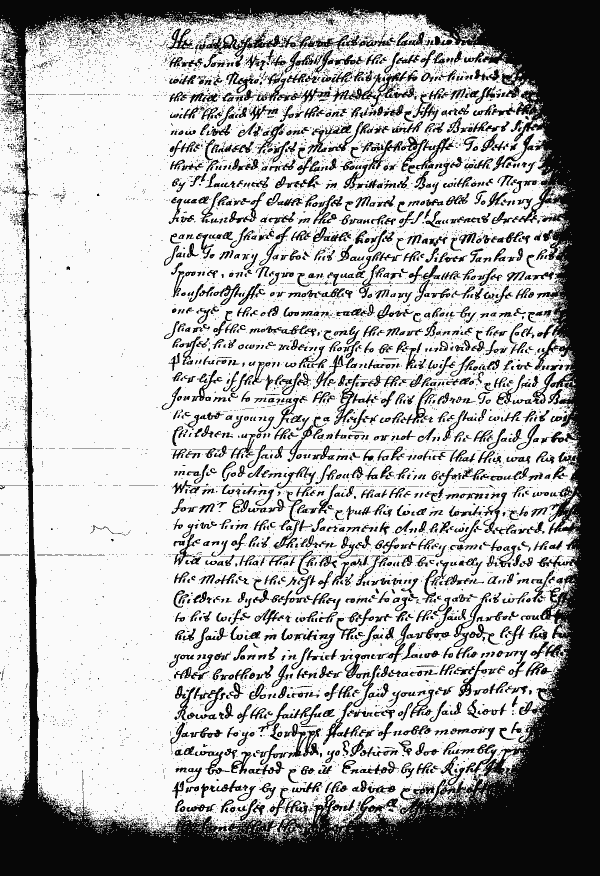 He was Resolved to have his owne land
three Sonns Vizt. to John Jarboe the Seate of land where
with one Negro, together with his right to One hundred
the Mill land where Wm Medley lived, & the Mill
with the said Wm for the one hundred & fifty acres where the
now lives As also one equall share with his Brothers Sister
of the Chattels horses & Mares & householdstuffe To Peter Jar
three hundred acres of land bought or Exchanged with Henry
by St Laurences Creeke in Brittaines Bay with one Negro
equall share of Cattle horses & Mares & moveables To Henry Jar
five hundred acres in the branches of St Laurences Creeke one
& an equall share of the Cattle horses & Mares & Moveables as
said To Mary Jarboe his Daughter the Silver Tankard & his
Spoones, one Negro & an equall share of Cattle horses Mares
householdstuffe or moveables To Mary Jarboe his wife the
one eye & the old woman called by name, & an
share of the moveables, & only the Mare Bannie & her Colt, of the
horses, his owne rideing horse to be kept undivided for the use of
Plantacon, upon which Plantacon his wife should live durin
her life if she pleased He desired the Chancellor & the said John
Jourdaine to manage the Estate of his Children To Edward
he gave a young filly & a Heifer whether he staid with his wife
Children upon the Plantacon or not And he the said Jarboe
then bid the said Jourdaine to take notice that this was his
incase God Almighty should take him before he could make
Will in Writing, & then said, that the next morning he would
for Mr. Edward Clarke & putt his Will in Writing, & to Mr
to give him the last Sacraments And likewise declared, that
case any of his Children dyed before they came to age, that
Will was, that that Childs part should be equally divided betwe
the Mother & the rest of his surviving Children And incase all
Children dyed before they come to age, he gave his whole Est
to his wife After which & before he the said Jarboe could
his said Will in Writing the said Jarboe dyed, & left his
younger Sonns in strict rigour of Lawe to the mercy of the
elder brothers In tender Consideracon therefore of the
distressed Condicon of the said younger Brothers,
Reward of the faithfull services of the said Lievt:
Jarboe to yor. Lordpps ffather of noble memory & to
allwayes performed, yor Peticonrs doe humbly pr
may be Enacted & be it Enacted by the Right
Proprietary by & with the advice & consent of the
lower houses of this psent Genrll